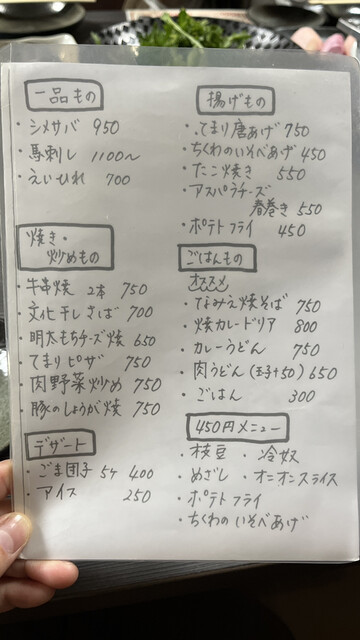 一品もの
・シメサバ 950
・馬刺し 1100〜
・えいひれ 700
焼き・
炒めもの
・牛串焼 2本 750
・文化干しさば 700
・明太もちチーズ焼 650
・てまりピザ 750
・肉野菜炒め 750
・豚のしょうが焼 750
デザート
・ごま団子 5ヶ 400
・アイス 250
揚げもの
・てまり唐あげ 750
・ちくわのいそべあげ 450
・たこ焼き 550
・アスパラチーズ
春巻き 550
・ポテトフライ 450
ごはんもの
オススメ
・なみえ焼そば 750
・焼カレードリア 800
・カレーうどん 750
・肉うどん (玉子+50) 650
・ごはん 300
450円メニュー
・枝豆 ・冷奴
・めざし ・オニオンスライス
・ポテトフライ
・ちくわのいそべあげ